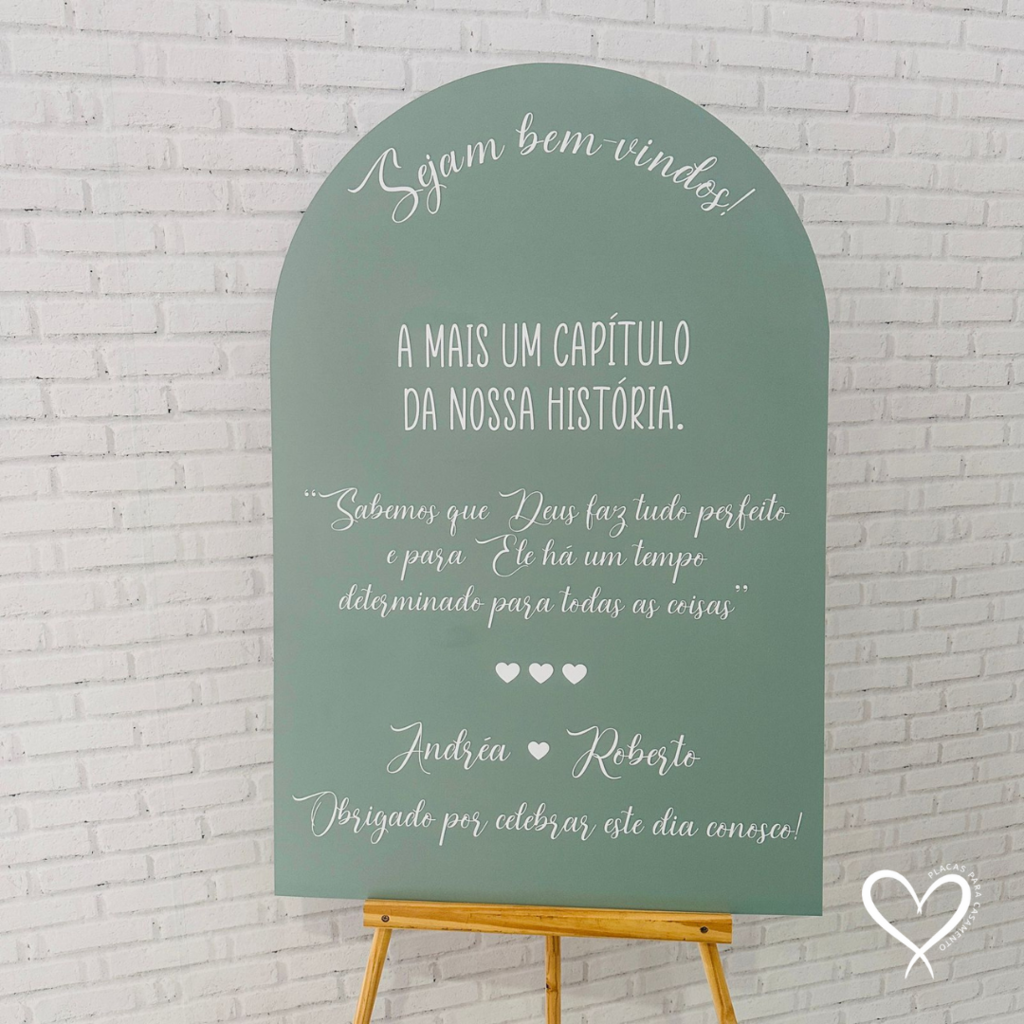 Sejam bem-vindos!
A MAIS UM CAPÍTULO
DA NOSSA HISTÓRIA.
“Sabemos que Deus faz tudo perfeito
e para Ele há um tempo
determinado para todas as coisas”
Andréa Roberto
Obrigado por celebrar este dia conosco!
PLACAS PARA CASAMENTO